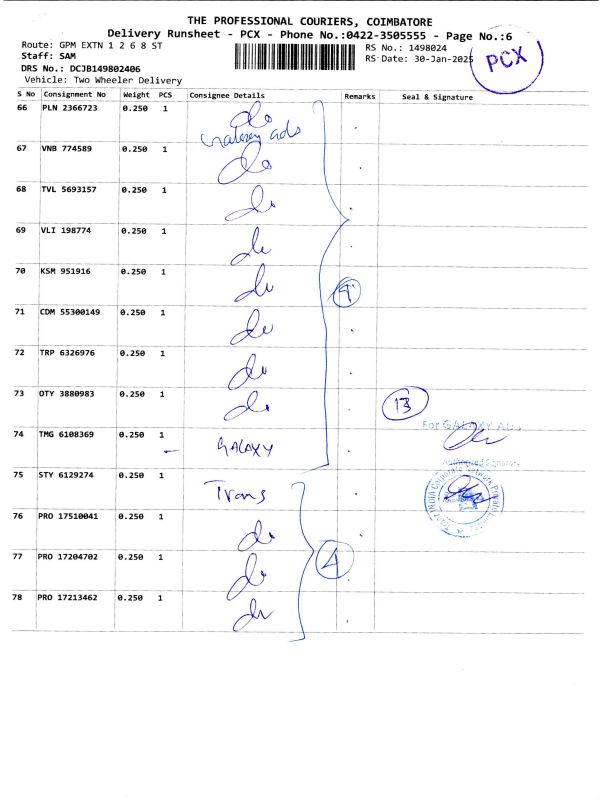 THE PROFESSIONAL COURIERS, COIMBATORE
Delivery Runsheet - PCX - Phone No.:0422-3505555 - Page No.:6
Route: GPM EXTN 1 2 6 8 ST
RS No.: 1498024
Staff: SAM
RS Date: 30-Jan-2025
PCX
DRS No.: DCJB149802406
Vehicle: Two Wheeler Delivery
S No Consignment No Weight PCS Consignee Details Remarks Seal & Signature
66 PLN 2366723 0.250 1 do
Galaxy ads
67 VNB 774589 0.250 1 do
68 TVL 5693157 0.250 1 do
69 VLI 198774 0.250 1 do
70 KSM 951916 0.250 1 do
71 CDM 55300149 0.250 1 do
72 TRP 6326976 0.250 1 do
73 OTY 3880983 0.250 1 do
13
For GALAXY ADS
74 TMG 6108369 0.250 1 GALAXY
Authorized Signatory
75 STY 6129274 0.250 1 Trans
76 PRO 17510041 0.250 1 do
77 PRO 17204702 0.250 1 do
4
78 PRO 17213462 0.250 1 do